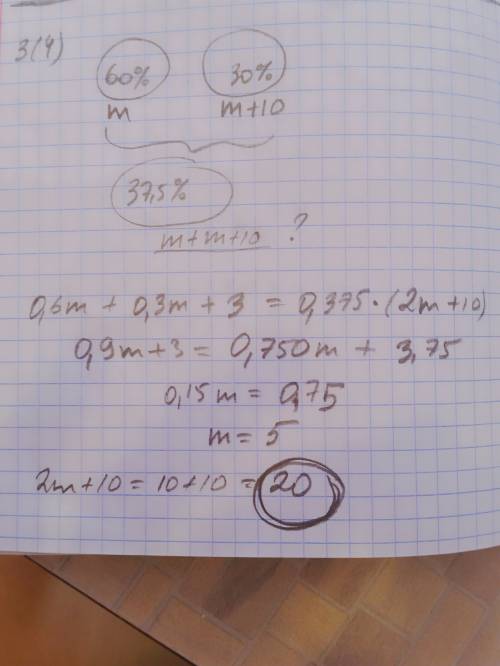 3(4)
60% 30%
m m+10
37,5%
m+m+10 ?
0,6m + 0,3m + 3 = 0,375·(2m+10)
0,9m+3 = 0,750m + 3,75
0,15m = 0,75
m = 5
2m+10 = 10+10 = 20